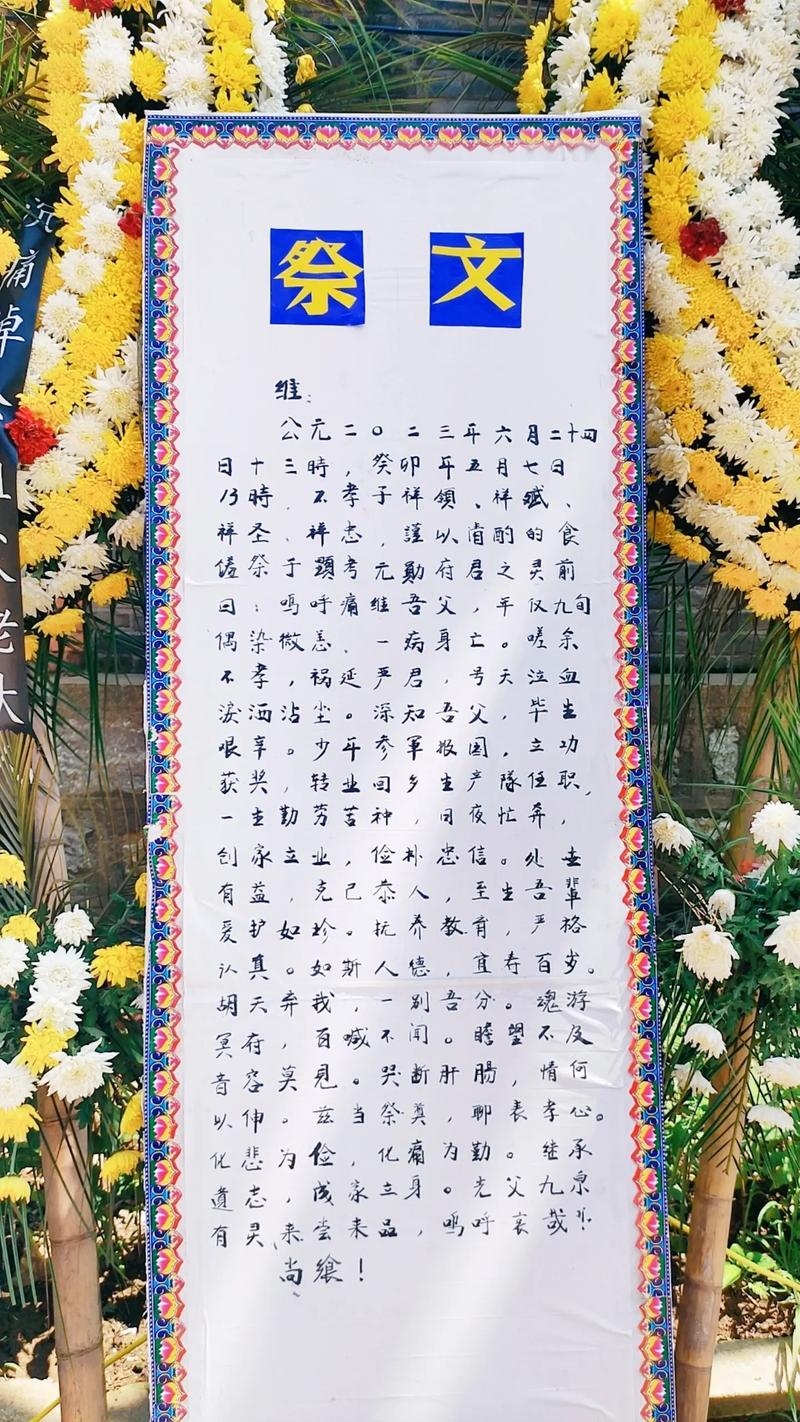 祭文
维:
公元二〇二三年六月二十四
日十三時，癸卯年五月七日
13時，不孝子祥領、祥斌、
祥圣、祥志，謹以清酌的食
僐祭于顕考元勛府君之灵前
曰：鳴呼痛维吾父，年仅九旬
偶染微恙、一病身亡。嗟余
不孝，祸延严君，号天泣血
洒沾尘。深知吾父，毕生
艰辛。少年参軍报国，立功
获奖，转业回乡生产隊任职，
一生勤劳苦神，日夜忙奔，
创家立业，俭朴忠信。处世
有益，克己恭人，至生吾輩
爱护如珍。抚养教育，严格
认真。如斯人德，宜寿百岁。
胡天弃我，一别吾分。魂游
冥府，百喊不闻。瞻望不及
音容莫見。哭断肝腸，情何
以伸。兹当祭奠，聊表孝心。
化悲为俭，化痛为勤。继承
遗志，成家立身。先父九泉
有灵、来尝来品，鳴呼哀哉！
尚飨！
沉痛悼念
父老大